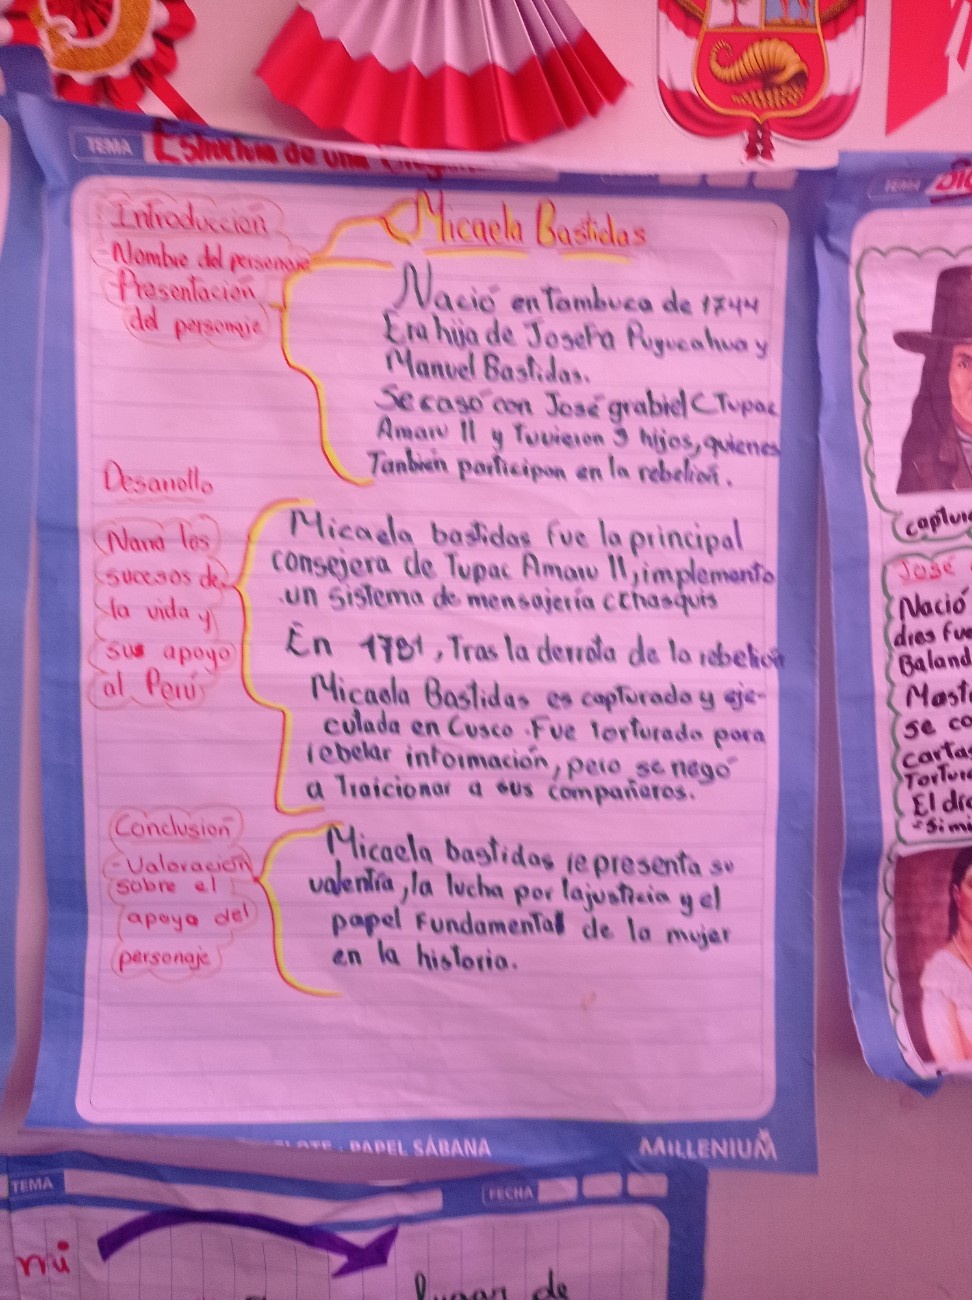 TEMA Estructura de una
Introduccion
- Nombre del personaje
- Presentación
del personaje
Micaela Bastidas
Nació en Tambuca de 1744
Era hija de Josefa Puyucahua y
Manuel Bastidas.
Se casó con José grabiel C Tupac
Amaru II y Tuvieron 3 hijos, quienes
Tanbién participon en la rebelion.
Desarrollo
Narra los
sucesos de
la vida y
sus apoyo
al Perú
Micaela bastidas fue la principal
consejera de Tupac Amaru II, implemento
un sistema de mensajería c chasquis
En 1781, Tras la derrota de la rebelion
Micaela Bastidas es capturada y eje-
cutada en Cusco. Fue torturada para
rebelar información, pero se negó
a Traicionar a sus compañeros.
Conclusion
- Valoración
sobre el
apoyo del
personaje
Micaela bastidas representa su
valentía, la lucha por la justicia y el
papel Fundamental de la mujer
en la historia.
PAPEL SÁBANA
MILLENIUM
TEMA
captu
José
Nació
dres fu
Baland
Mast
se co
cartas
Tortur
El día
TEMA
FECHA
mi
lugar de